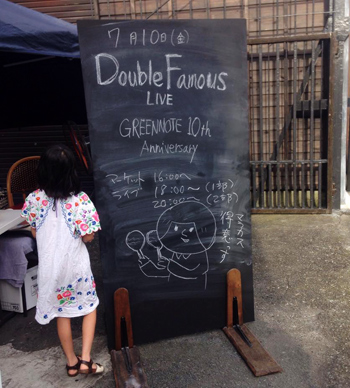 7月10日(金)
Double Famous
LIVE
GREENNOTE 10th
Anniversary
マーケット 16:00〜
ライブ 18:00〜 (1部)
20:00〜 (2部)
マラカス
得意です